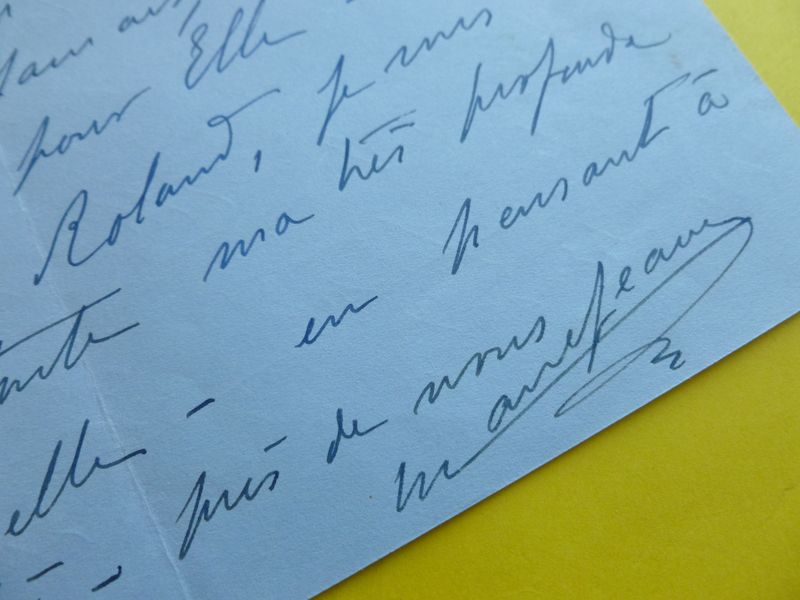 pour Elle
Roland, je mis
ma très profonde
en pensant à
elle -
près de nous
Marie Jeanne